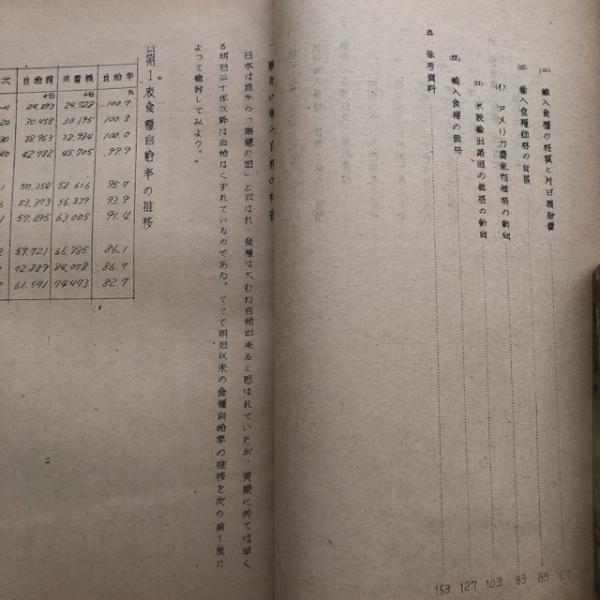 (三) 輸入食糧の種類と
(三) 輸入食糧価格の背景
(イ) アメリカ農産物価格の動向
米穀輸出諸国の価格の動向
(四) 輸入食糧の価格
五 参考資料
67
83
83
103
127
153
日本は昔から「瑞穂の国」と云はれ、食糧は大むね自給出来ると思はれていたが、実際に於ては早く
も明治三十年以降は自給はくずれているのである。そこで明治以来の食糧自給率の推移を次の第1表に
よつて検討してみよう。
第1表 食糧自給率の推移
次 自給額 需要額 自給率
千石 千石 %
24,893 24,728 100.7
20 30,458 30,195 100.8
30 38,963 38,984 100.0
40 42,982 45,705 99.9
1 50,354 52,616 95.7
53,373 56,839 93.9
1 57,695 63,005 91.4
59,721 66,985 86.1
72,889 84,078 86.7
61,571 74,473 82.7